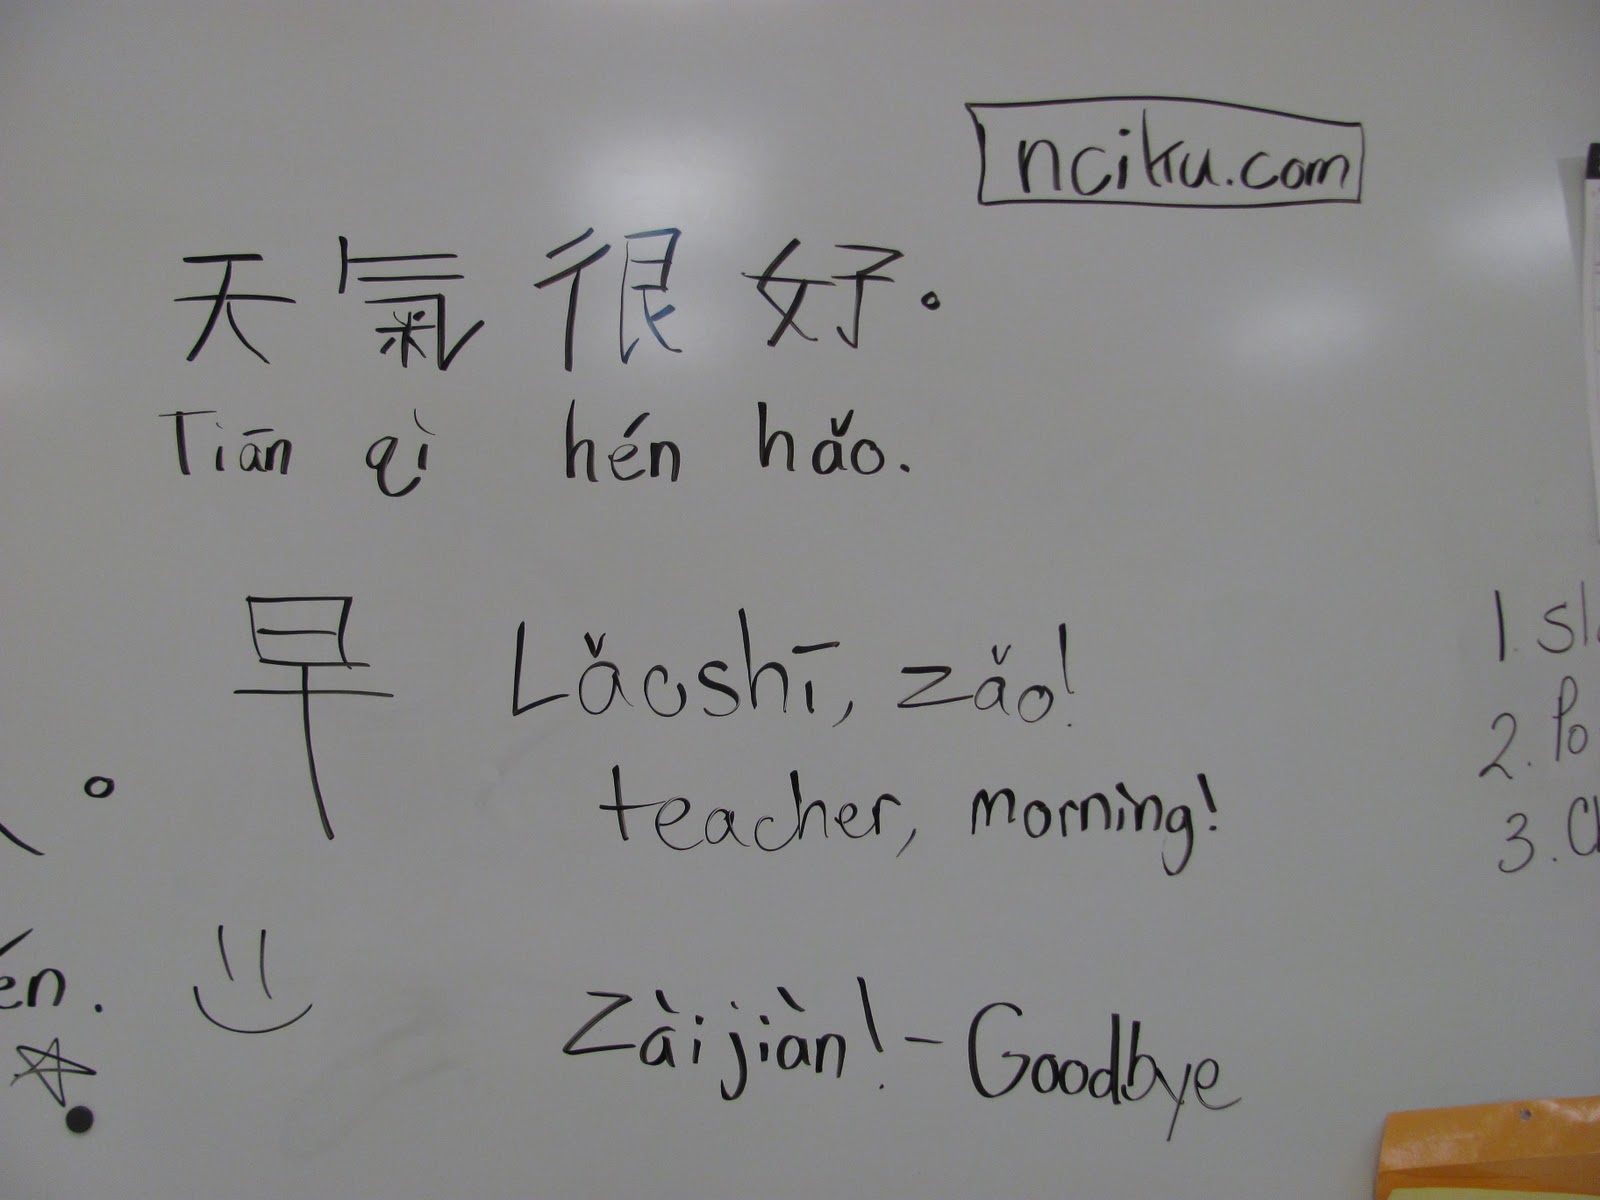 nciku.com
天氣很好。
Tiān qì hén hǎo.
早 Lǎoshī, zǎo!
teacher, morning!
Zàijiàn! - Goodbye
1.
2. Po
3.